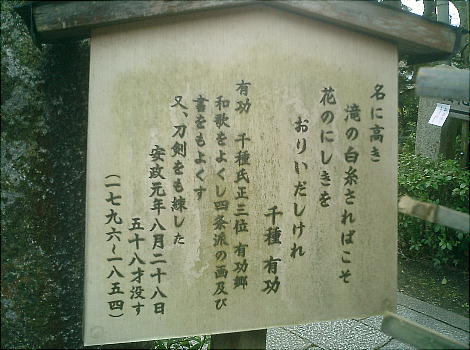 名に高き
滝の白糸さればこそ
花のにしきを
おりいだしけれ
千種 有功
有功 千種氏正三位 有功郷
和歌をよくし四条派の画及び
書をもよくす
又、刀剣をも練した
安政元年八月二十八日
五十八才没す
(一七九六〜一八五四)